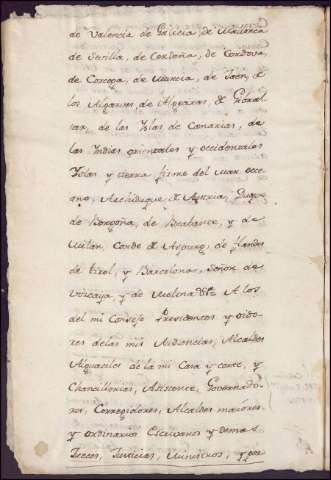 de Valencia de Galicia, de Mallorca
de Sevilla, de Cerdeña, de Cordova
de Corcega, de Murcia, de Jaen, de
los Algarves, de Algeciras, de Gibral
tar, de las Yslas de Canarias, de
las Indias orientales y occidentales
Yslas y tierra firme del mar occe
ano, Archiduque de Austria, Duque
de Borgoña, de Brabante, y de
Milan, Conde de Abspurg, de Flandes
de tirol, y Barcelona, Señor de
Vizcaya y de Molina &c. A los
del mi Consejo Presidentes y oido
res de las mis Audiencias, Alcaldes
Alguaciles de la mi Casa y corte, y
Chancillerias, Asistente, Governado
res, Corregidores, Alcaldes maiores
y ordinarios Escrivanos y demas
Jueces, Justicias, Ministros, y per